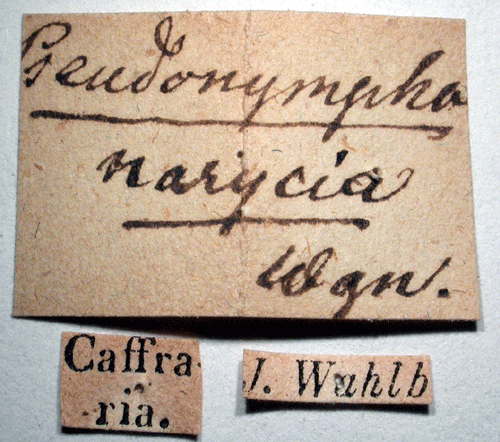 Pseudonympha
narycia
Wgn.
Caffra-
ria.
J. Wahlb